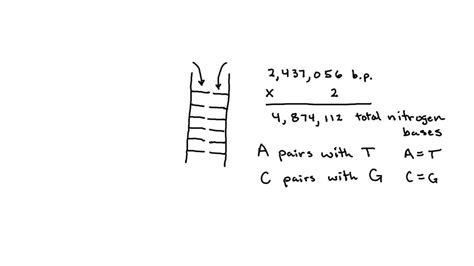 2,437,056 b.p.
x 2
4,874,112 total nitrogen
bases
A pairs with T A=T
C pairs with G C=G